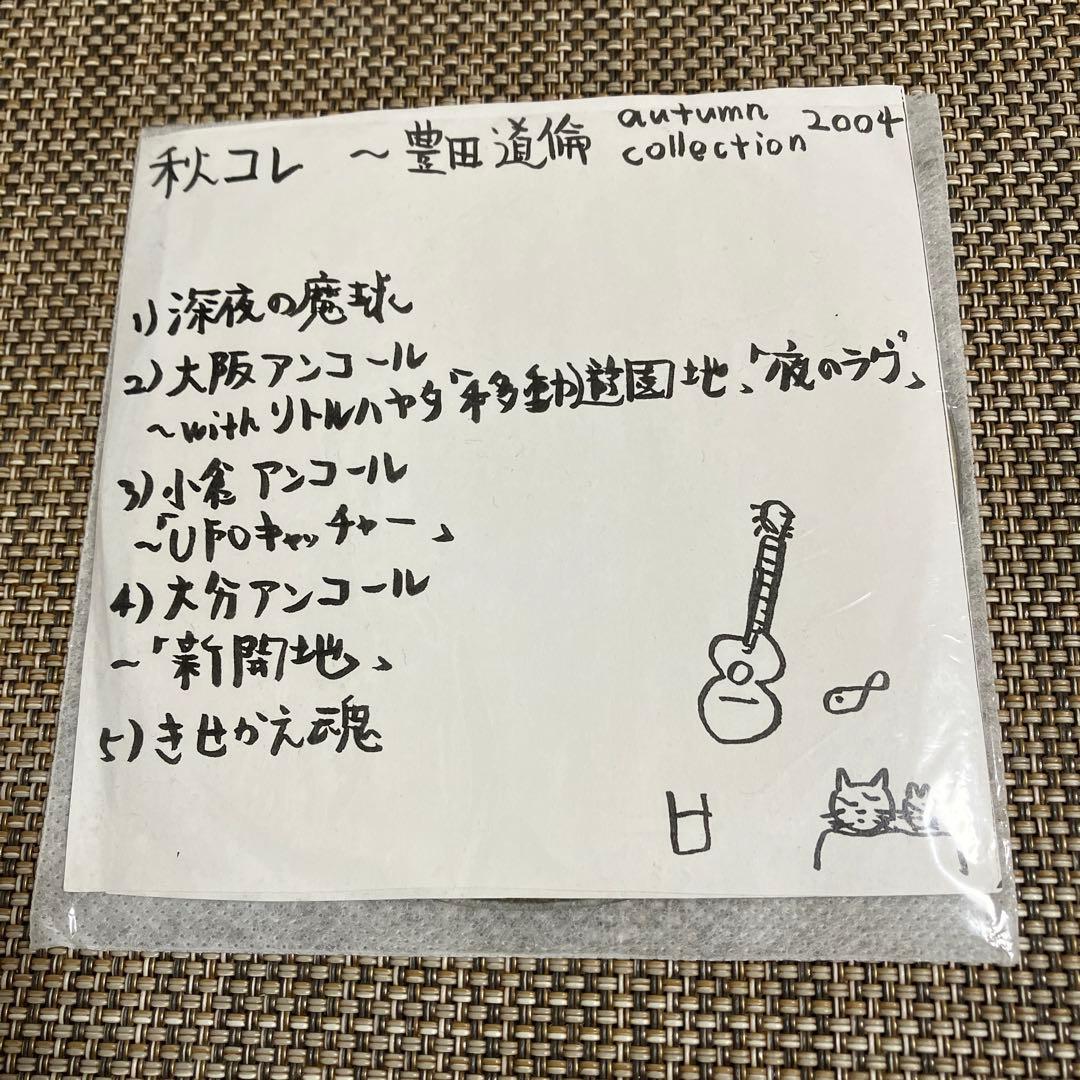 秋コレ ~豊田道倫 autumn collection 2004
1) 深夜の魔球
2) 大阪アンコール
~with リトルハヤタ「移動遊園地」「夜のラヴ」
3) 小倉アンコール
~「UFOキャッチャー」
4) 大分アンコール
~「新開地」
5) きせかえ魂